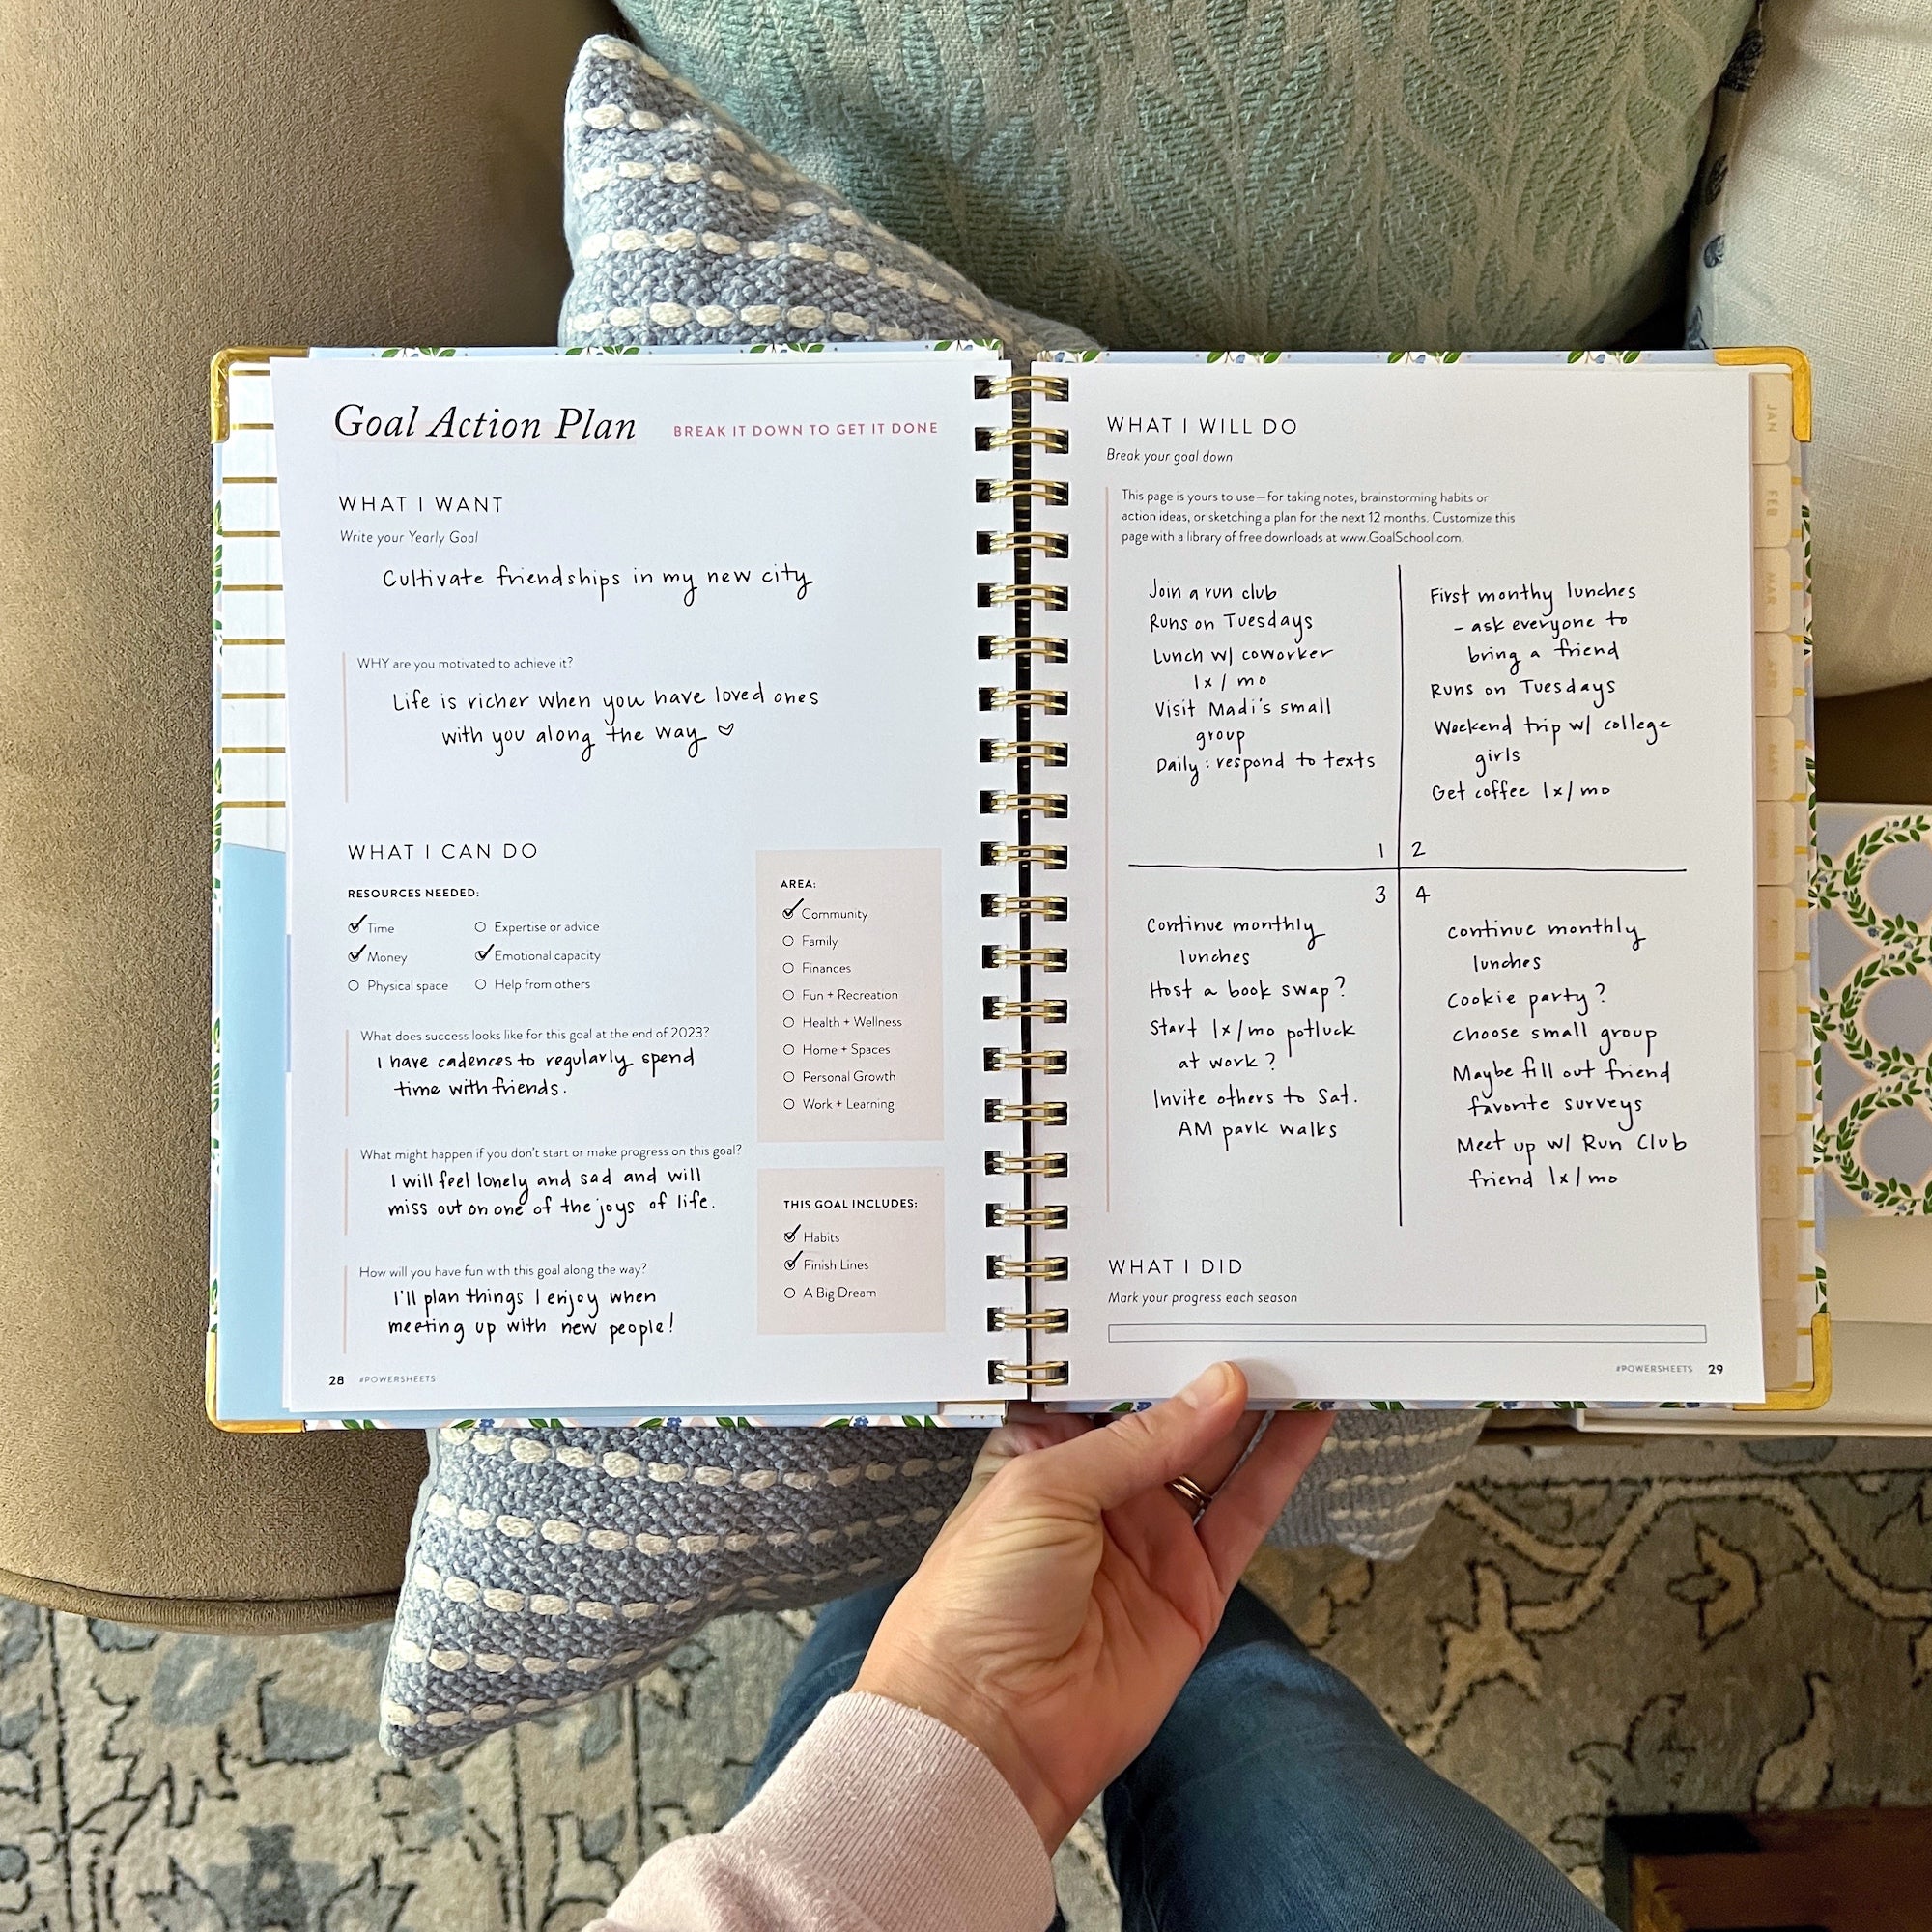 Goal Action Plan
BREAK IT DOWN TO GET IT DONE
WHAT I WANT
Write your Yearly Goal
Cultivate friendships in my new city
WHY are you motivated to achieve it?
Life is richer when you have loved ones
with you along the way ♡
WHAT I CAN DO
RESOURCES NEEDED:
Time
Expertise or advice
Money
Emotional capacity
Physical space
Help from others
What does success looks like for this goal at the end of 2023?
I have cadences to regularly spend
time with friends.
What might happen if you don't start or make progress on this goal?
I will feel lonely and sad and will
miss out on one of the joys of life.
How will you have fun with this goal along the way?
I'll plan things I enjoy when
meeting up with new people!
AREA:
Community
Family
Finances
Fun + Recreation
Health + Wellness
Home + Spaces
Personal Growth
Work + Learning
THIS GOAL INCLUDES:
Habits
Finish Lines
A Big Dream
28 #POWERSHEETS
WHAT I WILL DO
Break your goal down
This page is yours to use—for taking notes, brainstorming habits or
action ideas, or sketching a plan for the next 12 months. Customize this
page with a library of free downloads at www.GoalSchool.com.
Join a run club
Runs on Tuesdays
Lunch w/ coworker
1x/mo
Visit Madi's small
group
Daily: respond to texts
1
First monthy lunches
- ask everyone to
bring a friend
Runs on Tuesdays
Weekend trip w/ college
girls
Get coffee 1x/mo
2
3
Continue monthly
lunches
Host a book swap?
Start 1x/mo potluck
at work?
Invite others to Sat.
AM park walks
4
continue monthly
lunches
Cookie party?
Choose small group
Maybe fill out friend
favorite surveys
Meet up w/ Run Club
friend 1x/mo
WHAT I DID
Mark your progress each season
#POWERSHEETS 29
JAN
FEB
MAR